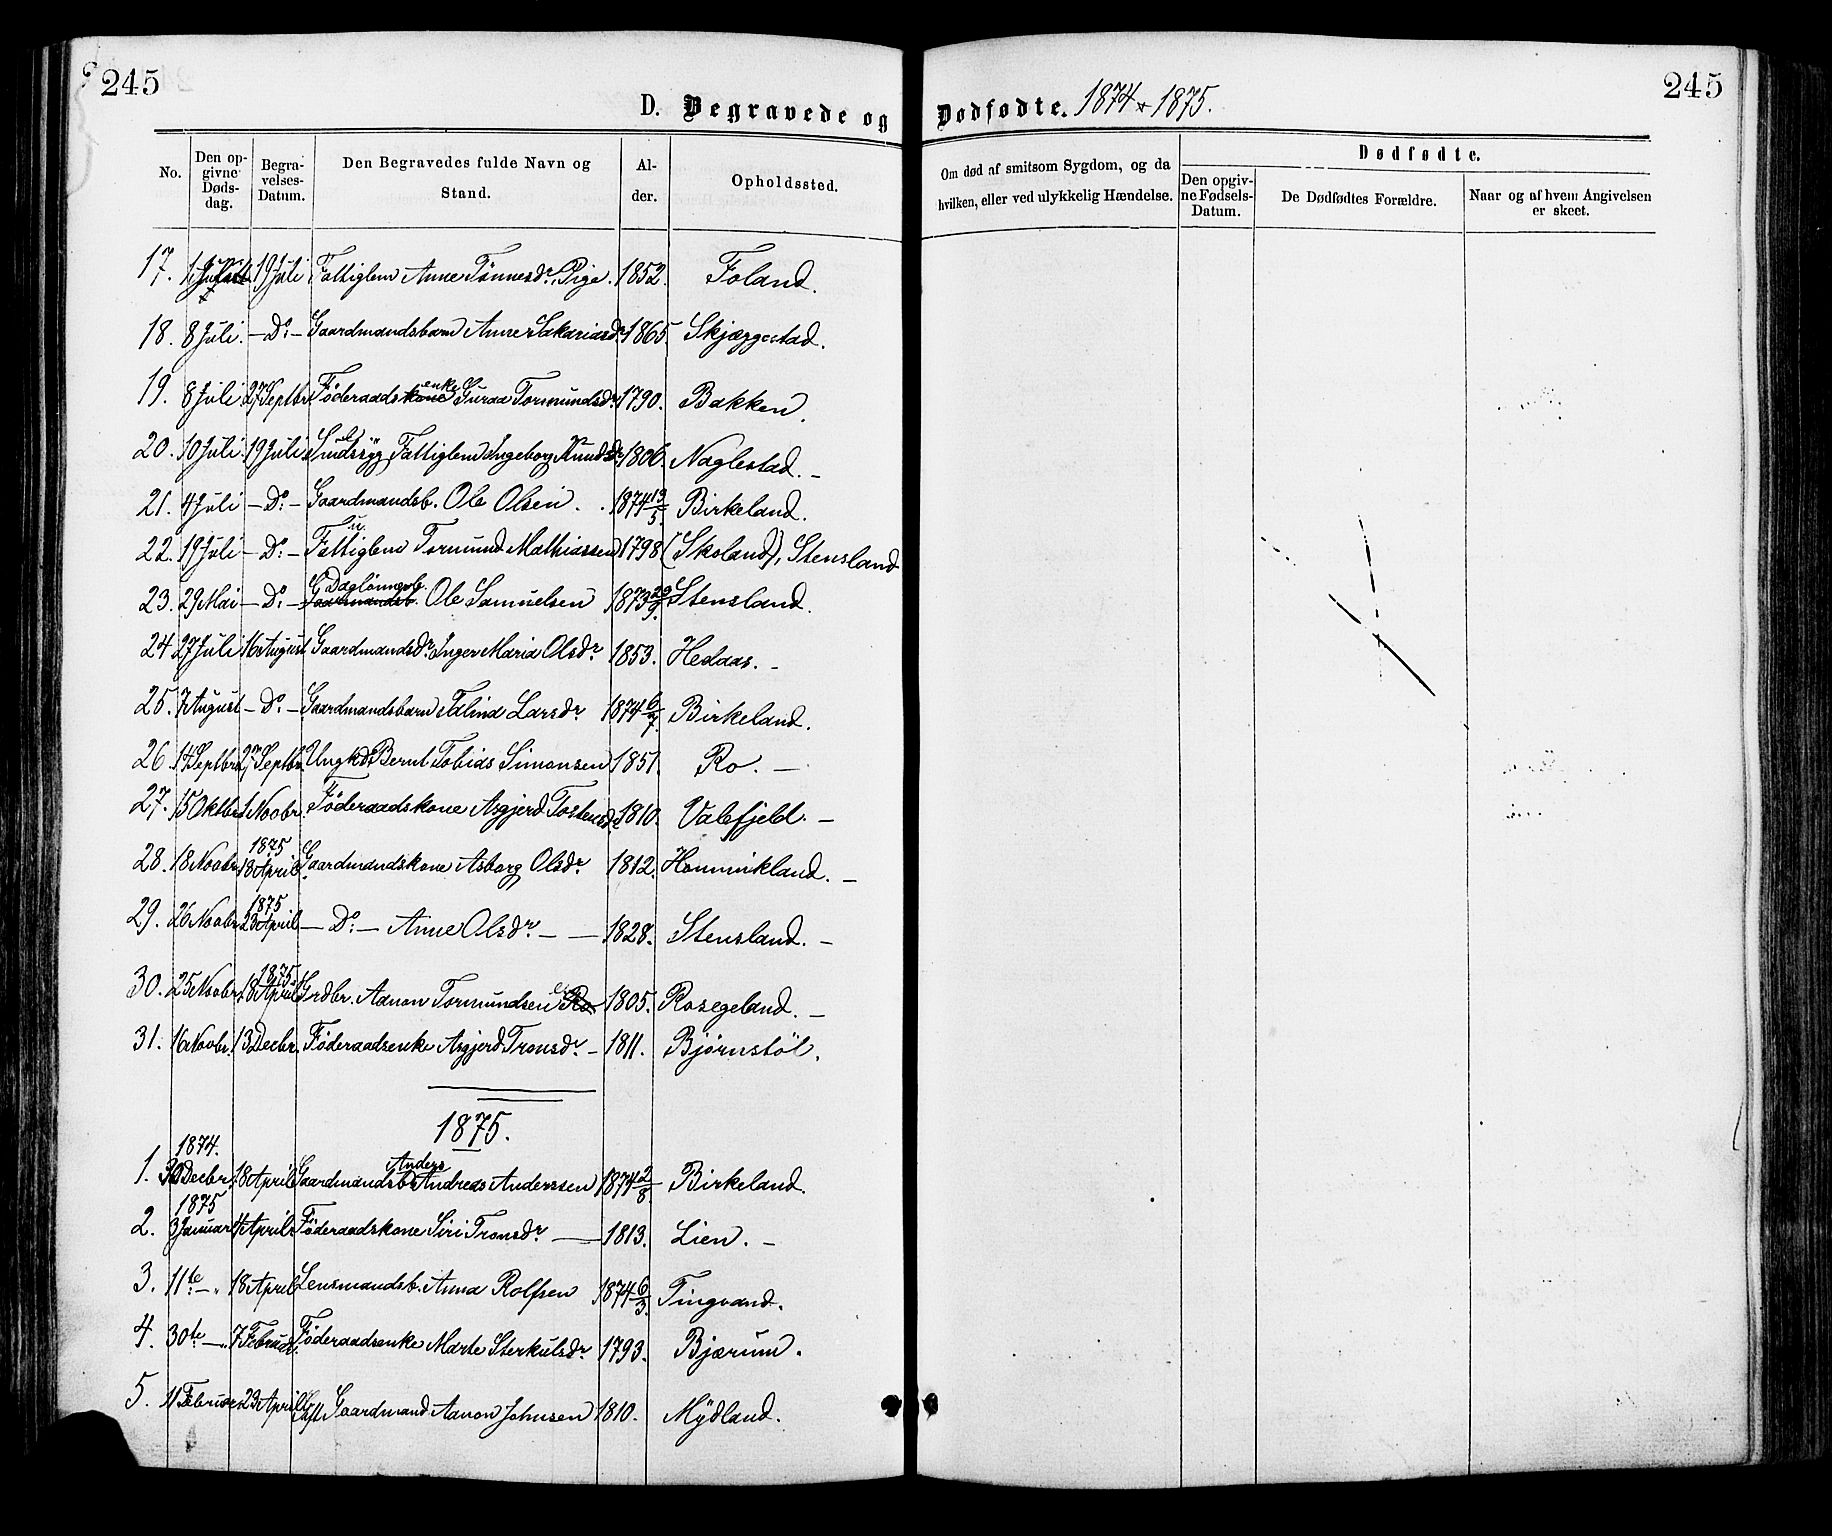 245
245
D. Begravede og Dødfødte. 1874 & 1875.
No.
Den opgivne Dødsdag.
Begravelses-Datum.
Den Begravedes fulde Navn og Stand.
Alder.
Opholdssted.
Om død af smitsom Sygdom, og da hvilken, eller ved ulykkelig Hændelse.
Dødfødte.
Den opgivne Fødsels-Datum.
De Dødfødtes Forældre.
Naar og af hvem Angivelsen er skeet.
17. 19 Juli Fattiglem Anne Tønnesdr, Pige. 1852. Foland.
18. 8 Juli. — Do: — Gaardmandsbarn Anne Sakariasdr 1865. Skjæggestad.
19. 8 Juli 27 Septbr. Föderaadskone enke Guraa Tormundsdr 1790. Bakken.
20. 10 Juli 19 Juli Sindssyg Fattiglem Ingeborg Knudsdr 1806. Naglestad. —
21. 4 Juli — Do: — Gaardmandsb. Ole Olsen. 1874 13/5. Birkeland.
22. 19 Juli — Do: — Fattiglem Tormund Mathiassen 1798 (Skoland), Stensland
23. 29 Mai — Do: — Gaardmandsb. Daglönnerb. Ole Samuelsen 1873 29/9. Stensland.
24 27 Juli 16 August Gaardmandsdr. Inger Maria Olsdr 1853. Hedaas. —
25. 7 August — Do: — Gaardmandsbarn Talina Larsdr 1874 6/7. Birkeland.
26. 14 Septbr. 27 Septbr. Ungkd. Bernt Tobias Simonsen 1851. Ro. —
27. 15 Oktbr. 1 Novbr. Föderaadskone Asgjerd Tostensdr 1810. Valefjeld. —
28. 18 Novbr. 1875 18 April. Gaardmandskone Asborg Olsdr 1812. Hommikland. —
29. 26 Novbr. 1875 23 April — Do: — Anne Olsdr. — — 1828. Stensland. —
30. 25 Novbr. 1875 18 April Grdbr. Aanon Tormundsen Ro 1805. Rosegeland. —
31. 16 Novbr. 13 Decbr. Föderaadsenke Asgjerd Tronsdr. — 1811. Bjørnstöl.
1875.
1. 1874. 30 Decbr. 18 April Gaardmandsbr. Anders Andreas Anderssen 1874 2/8. Birkeland.
2. 1875 3 Januar 4 April Föderaadskone Siri Tronsdr. — 1813. Lien. —
3. 11te — „ 18 April Lensmandsb. Anna Rolfsen 1874 6/3. Tingvand.
4. 30te — „ 7 Februar. Föderaadsenke Marte Sterkulsdr. 1793. Bjærum.
5. 11 Februar 23 April Gift Gaardmand Aanon Johnsen 1810. Mydland.